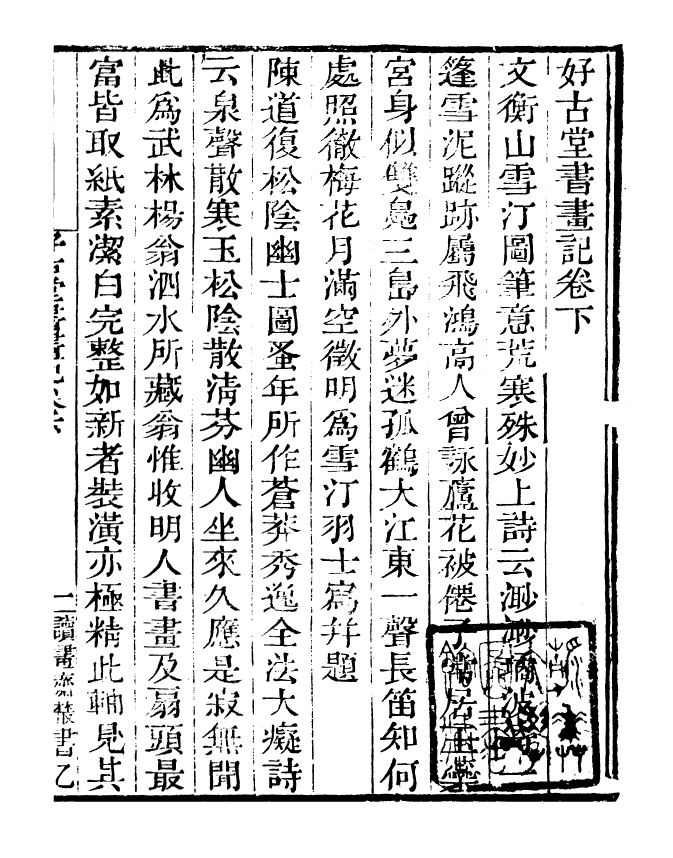 好古堂書畫記卷下
文衡山雪汀圖筆意荒寒殊妙上詩云渺渺橋波
篷雪泥蹤跡屬飛鴻高人曾詠蘆花被僊子常居玉蕊
宮身似雙鳧三島外夢迷孤鶴大江東一聲長笛知何
處照徹梅花月滿空徵明爲雪汀羽士寫并題
陳道復松陰幽士圖蚤年所作蒼莽秀逸全法大癡詩
云泉聲散寒玉松陰散清芬幽人坐來久應是寂無聞
此爲武林楊翁泗水所藏翁惟收明人書畫及扇頭最
富皆取紙素潔白完整如新者裝潢亦極精此軸見其
好古堂書畫記卷下
二讀畫齋叢書乙